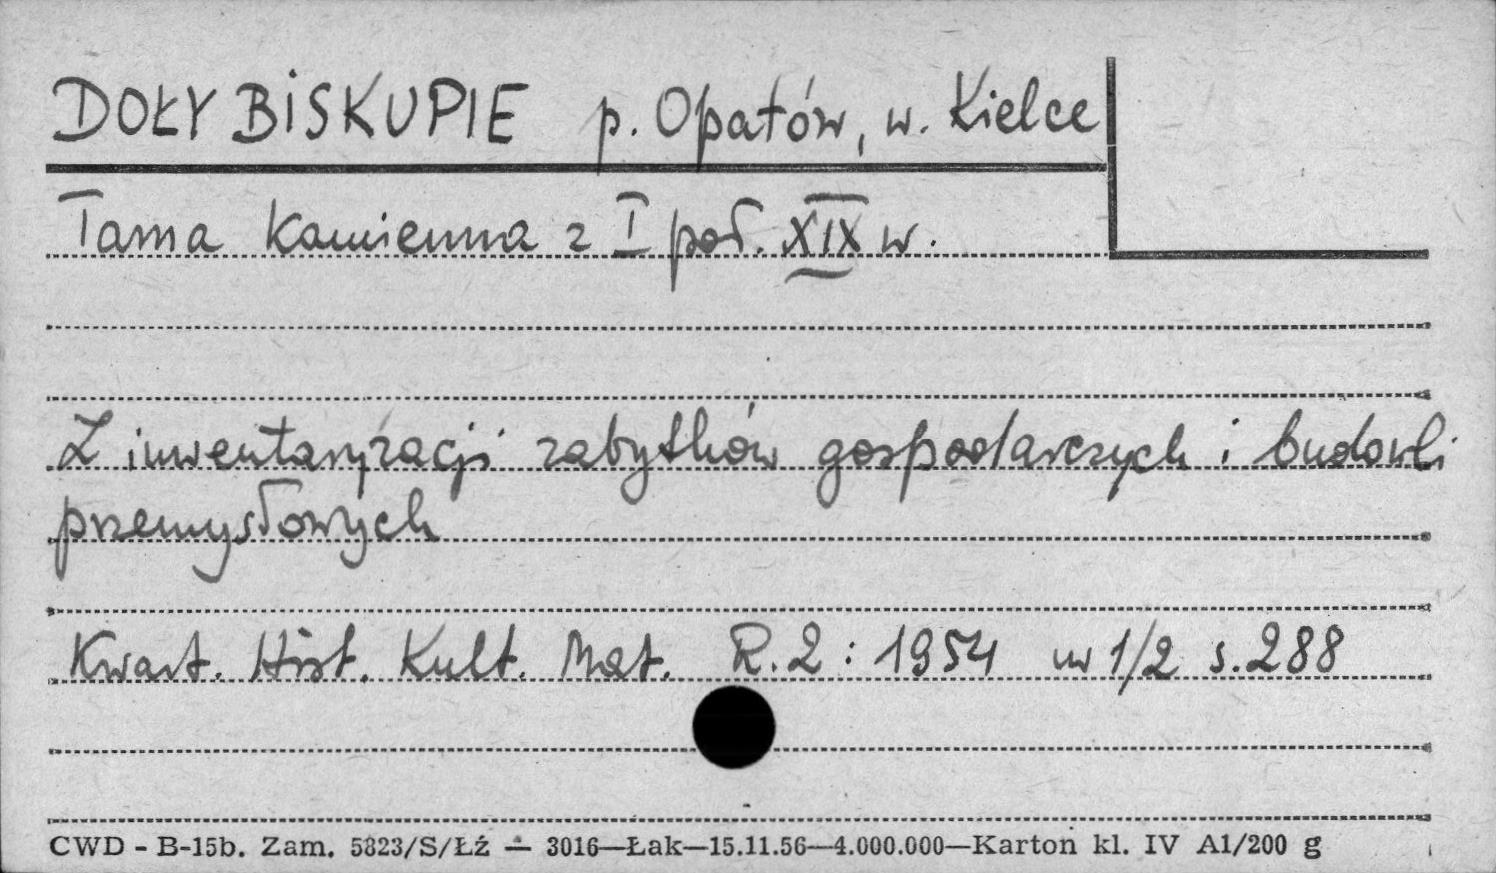 DOŁY BISKUPIE p. Opatów, w. Kielce
Tama kamienna z I poł. XIX w.
Z inwentaryzacji zabytków gospodarczych i budowli
przemysłowych
Kwart. Hist. Kult. Mat. R.2: 1954 nr 1/2 s.288
CWD - B-15b. Zam. 5823/S/Łź — 3016—Łak—15.11.56—4.000.000—Karton kl. IV A1/200 g